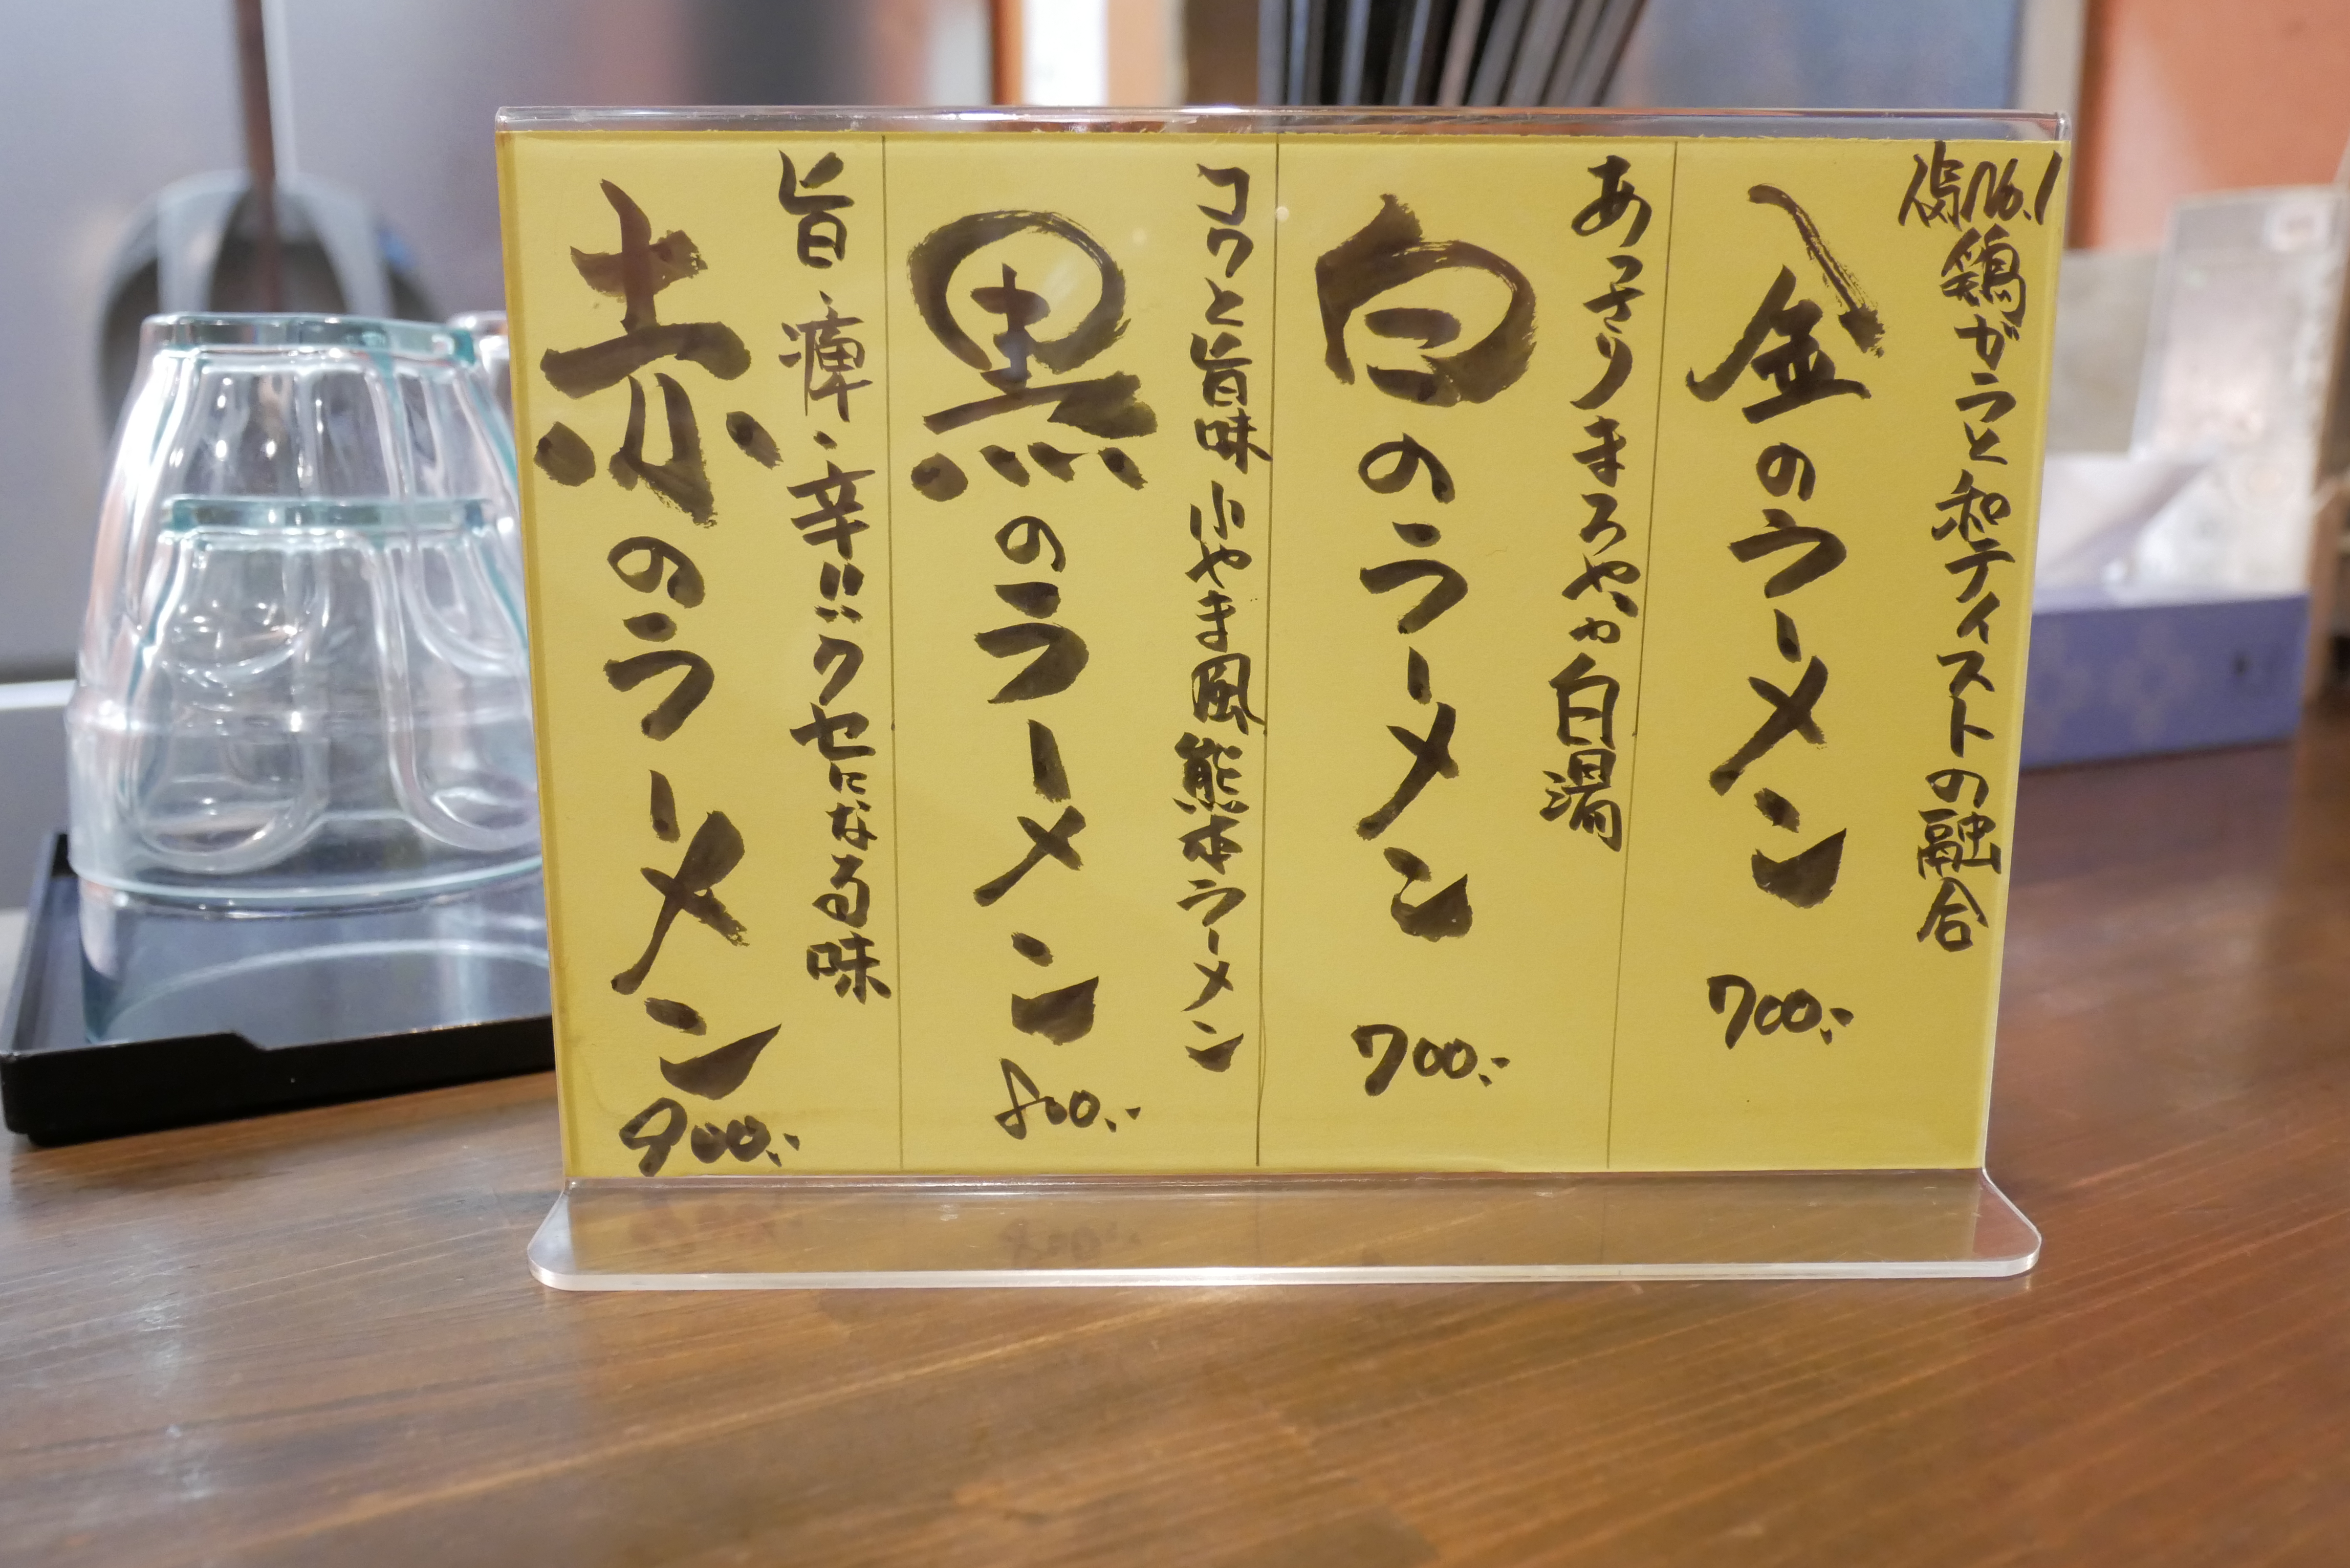 人気No.1
鶏ガラと和テイストの融合
金のラーメン 700.-
あっさりまろやか白湯
白のラーメン 700.-
コクと旨味 小やま風熊本ラーメン
黒のラーメン 800.-
旨・痺・辛!!クセになる味
赤のラーメン 900.-